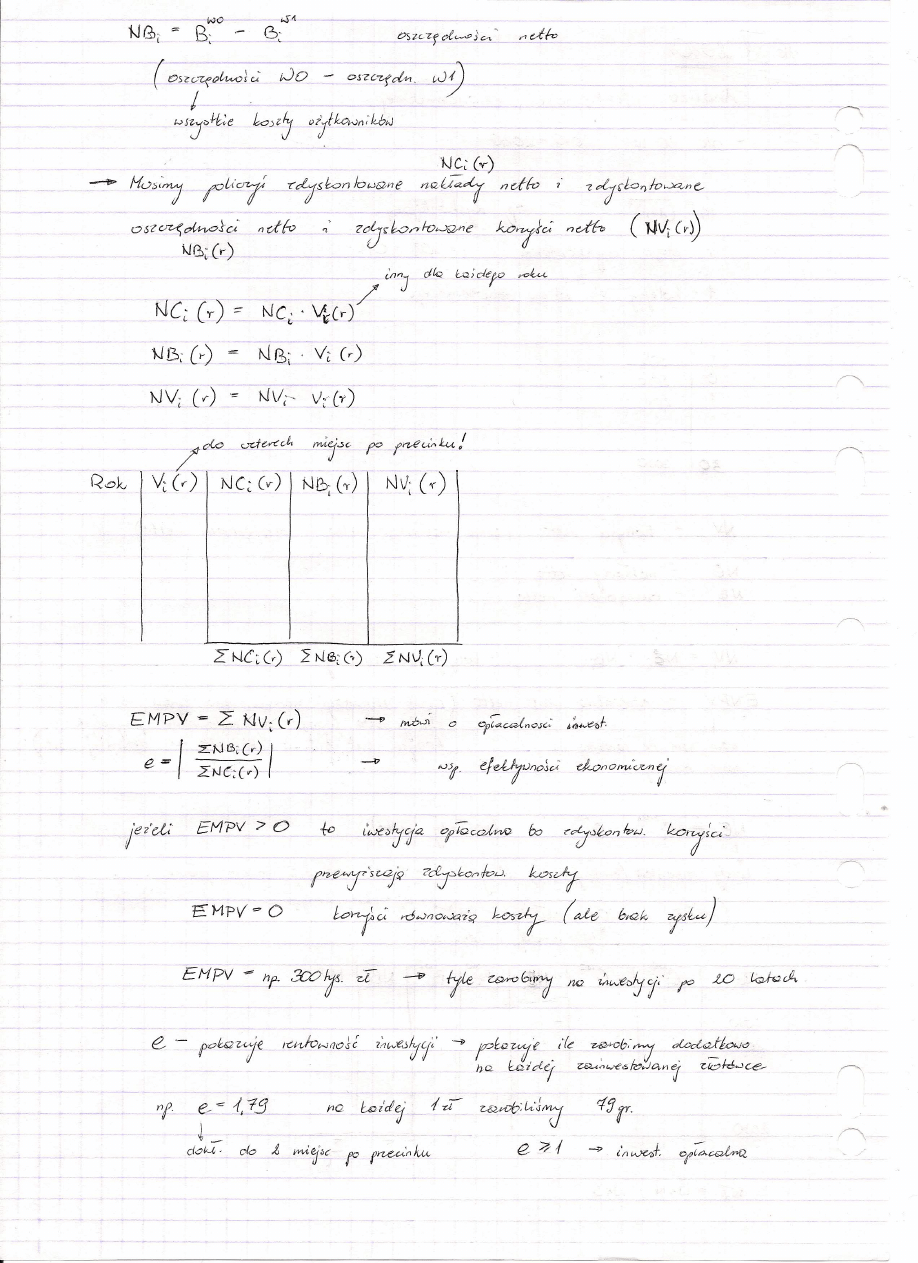 NBi = Bi^W0 − Bi^W1 oszczędności netto
(oszczędności W0 − oszczędn. W1)
wszystkie koszty użytkowników
NCi(r)
→ Musimy policzyć zdyskontowane nakłady netto i zdyskontowane
oszczędności netto i zdyskontowane korzyści netto (NVi(r))
NBi(r)
inny dla każdego roku
NCi(r) = NCi · Vi(r)
NBi(r) = NBi · Vi(r)
NVi(r) = NVi · Vi(r)
do czterech miejsc po przecinku!
Rok Vi(r) NCi(r) NBi(r) NVi(r)
ΣNCi(r) ΣNBi(r) ΣNVi(r)
EMPV = Σ NVi(r) → mówi o opłacalności inwest.
e = | ΣNBi(r) / ΣNCi(r) | → wsp. efektywności ekonomicznej
jeżeli EMPV > 0 to iwestycja opłacalna bo zdyskontow. korzyści
przewyższają zdyskontow. koszty
EMPV = 0 korzyści równoważą koszty (ale brak zysku)
EMPV = np. 300 tys. zł → tyle zarobimy na inwestycji po 20 latach
e − pokazuje rentowność inwestycji → pokazuje ile zarobimy dodatkowo
na każdej zainwestowanej złotówce
np. e = 1,79 na każdej 1 zł zarobiliśmy 79 gr.
dokł. do 2 miejsc po przecinku e ≥ 1 → inwest. opłacalna